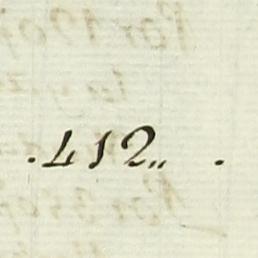 .412„ .